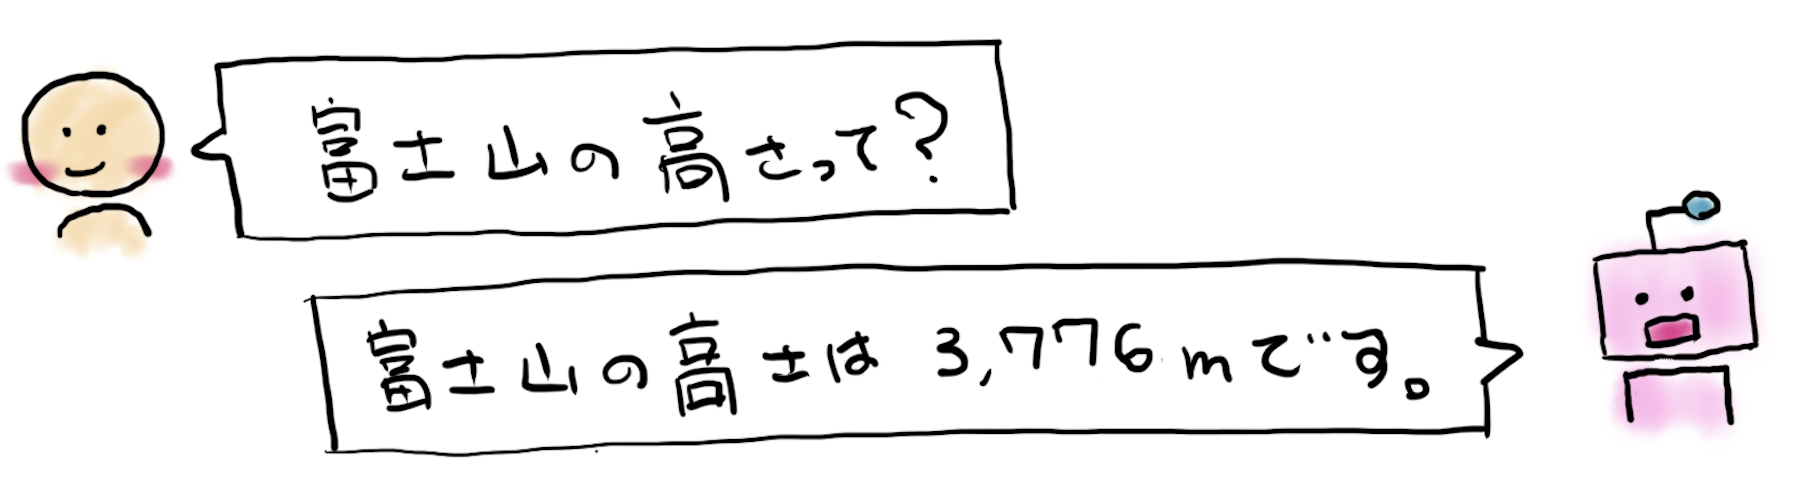 富士山の高さって?
富士山の高士は 3,776mです。